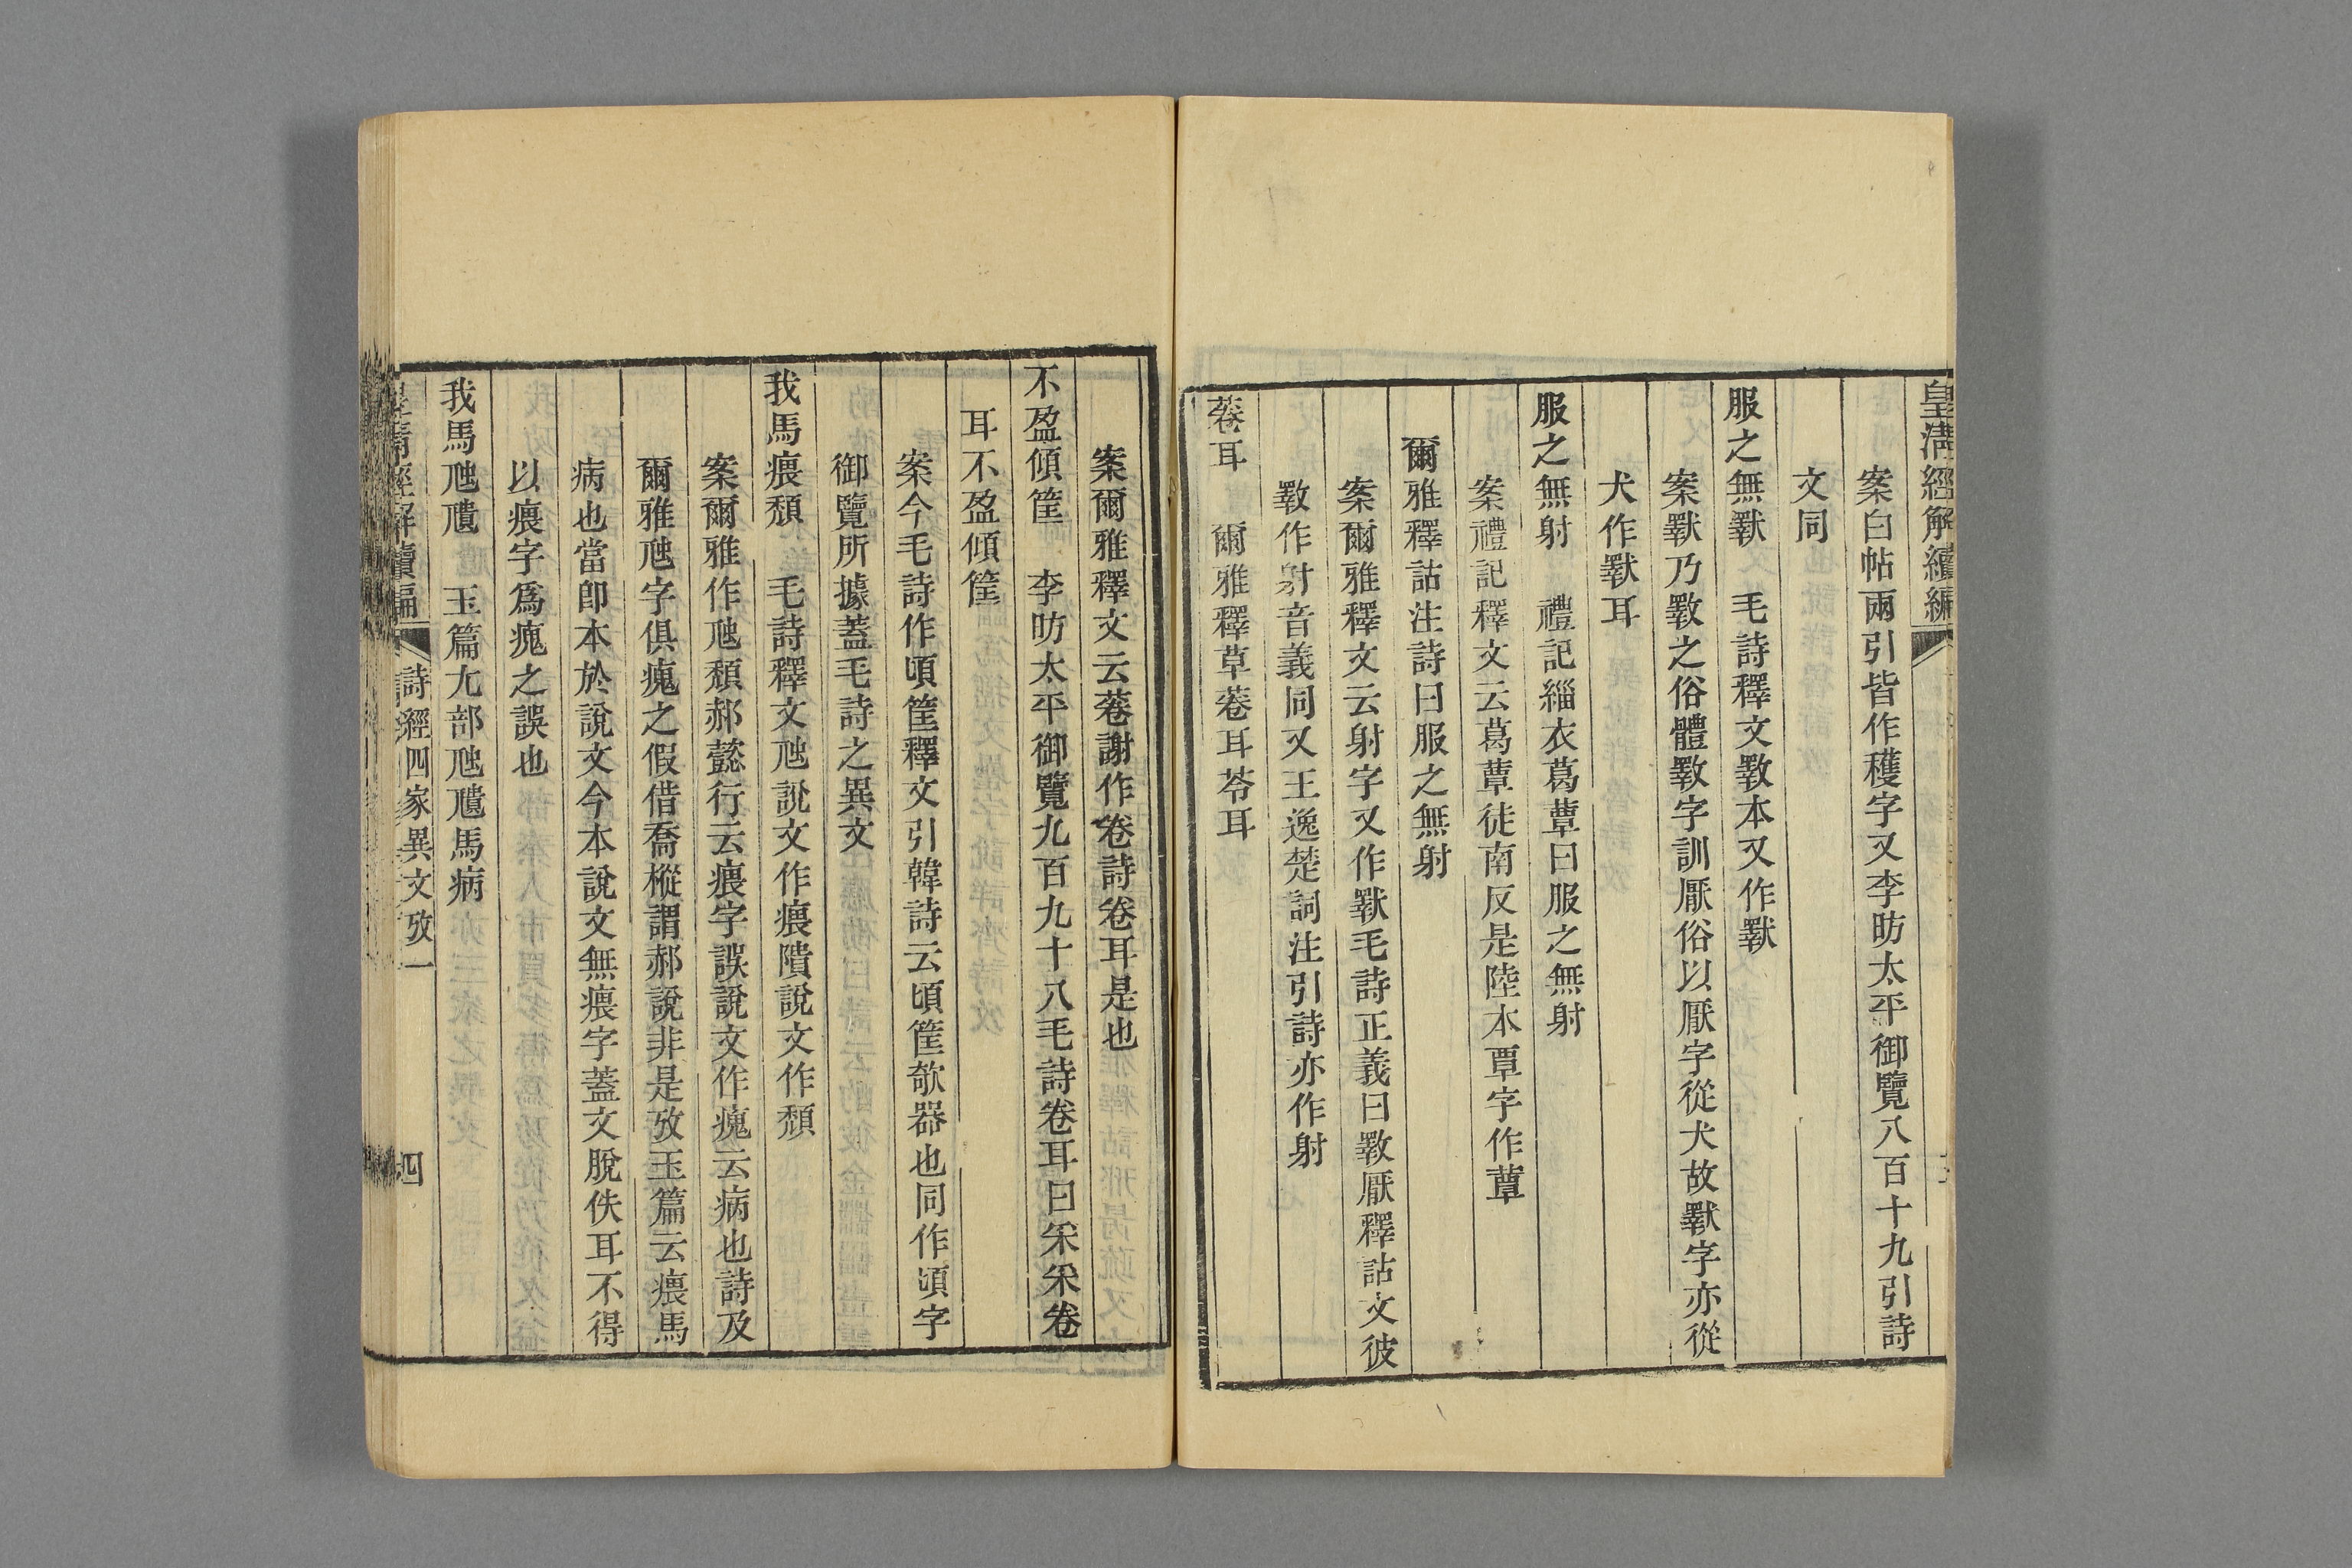 皇清經解續編
案白帖兩引皆作穫字又李昉太平御覽八百十九引詩
文同
服之無斁 毛詩釋文斁本又作㹃
案㹃乃斁之俗體斁字訓厭俗以厭字從犬故㹃字亦從
犬作㹃耳
服之無射 禮記緇衣葛蕈曰服之無射
案禮記釋文云葛蕈徒南反是陸本覃字作蕈
爾雅釋詁注詩曰服之無射
案爾雅釋文云射字又作㹃毛詩正義曰斁厭釋詁文彼
斁作射音義同又王逸楚詞注引詩亦作射
菤耳 爾雅釋草菤耳苓耳
案爾雅釋文云菤謝作卷詩卷耳是也
不盈傾筐 李昉太平御覽九百九十八毛詩卷耳曰采采卷
耳不盈傾筐
案今毛詩作頃筐釋文引韓詩云頃筐欹器也同作頃字
御覽所據蓋毛詩之異文
我馬㾯頹 毛詩釋文虺說文作㾯隤說文作頹
案爾雅作虺頹郝懿行云㾯字誤說文作瘣云病也詩及
爾雅虺字俱瘣之假借喬樅謂郝說非是攷玉篇云㾯馬
病也當卽本於說文今本說文無㾯字蓋文脫佚耳不得
以㾯字爲瘣之誤也
我馬虺尵 玉篇尢部虺尵馬病
皇清經解續編
詩經四家異文攷一
四